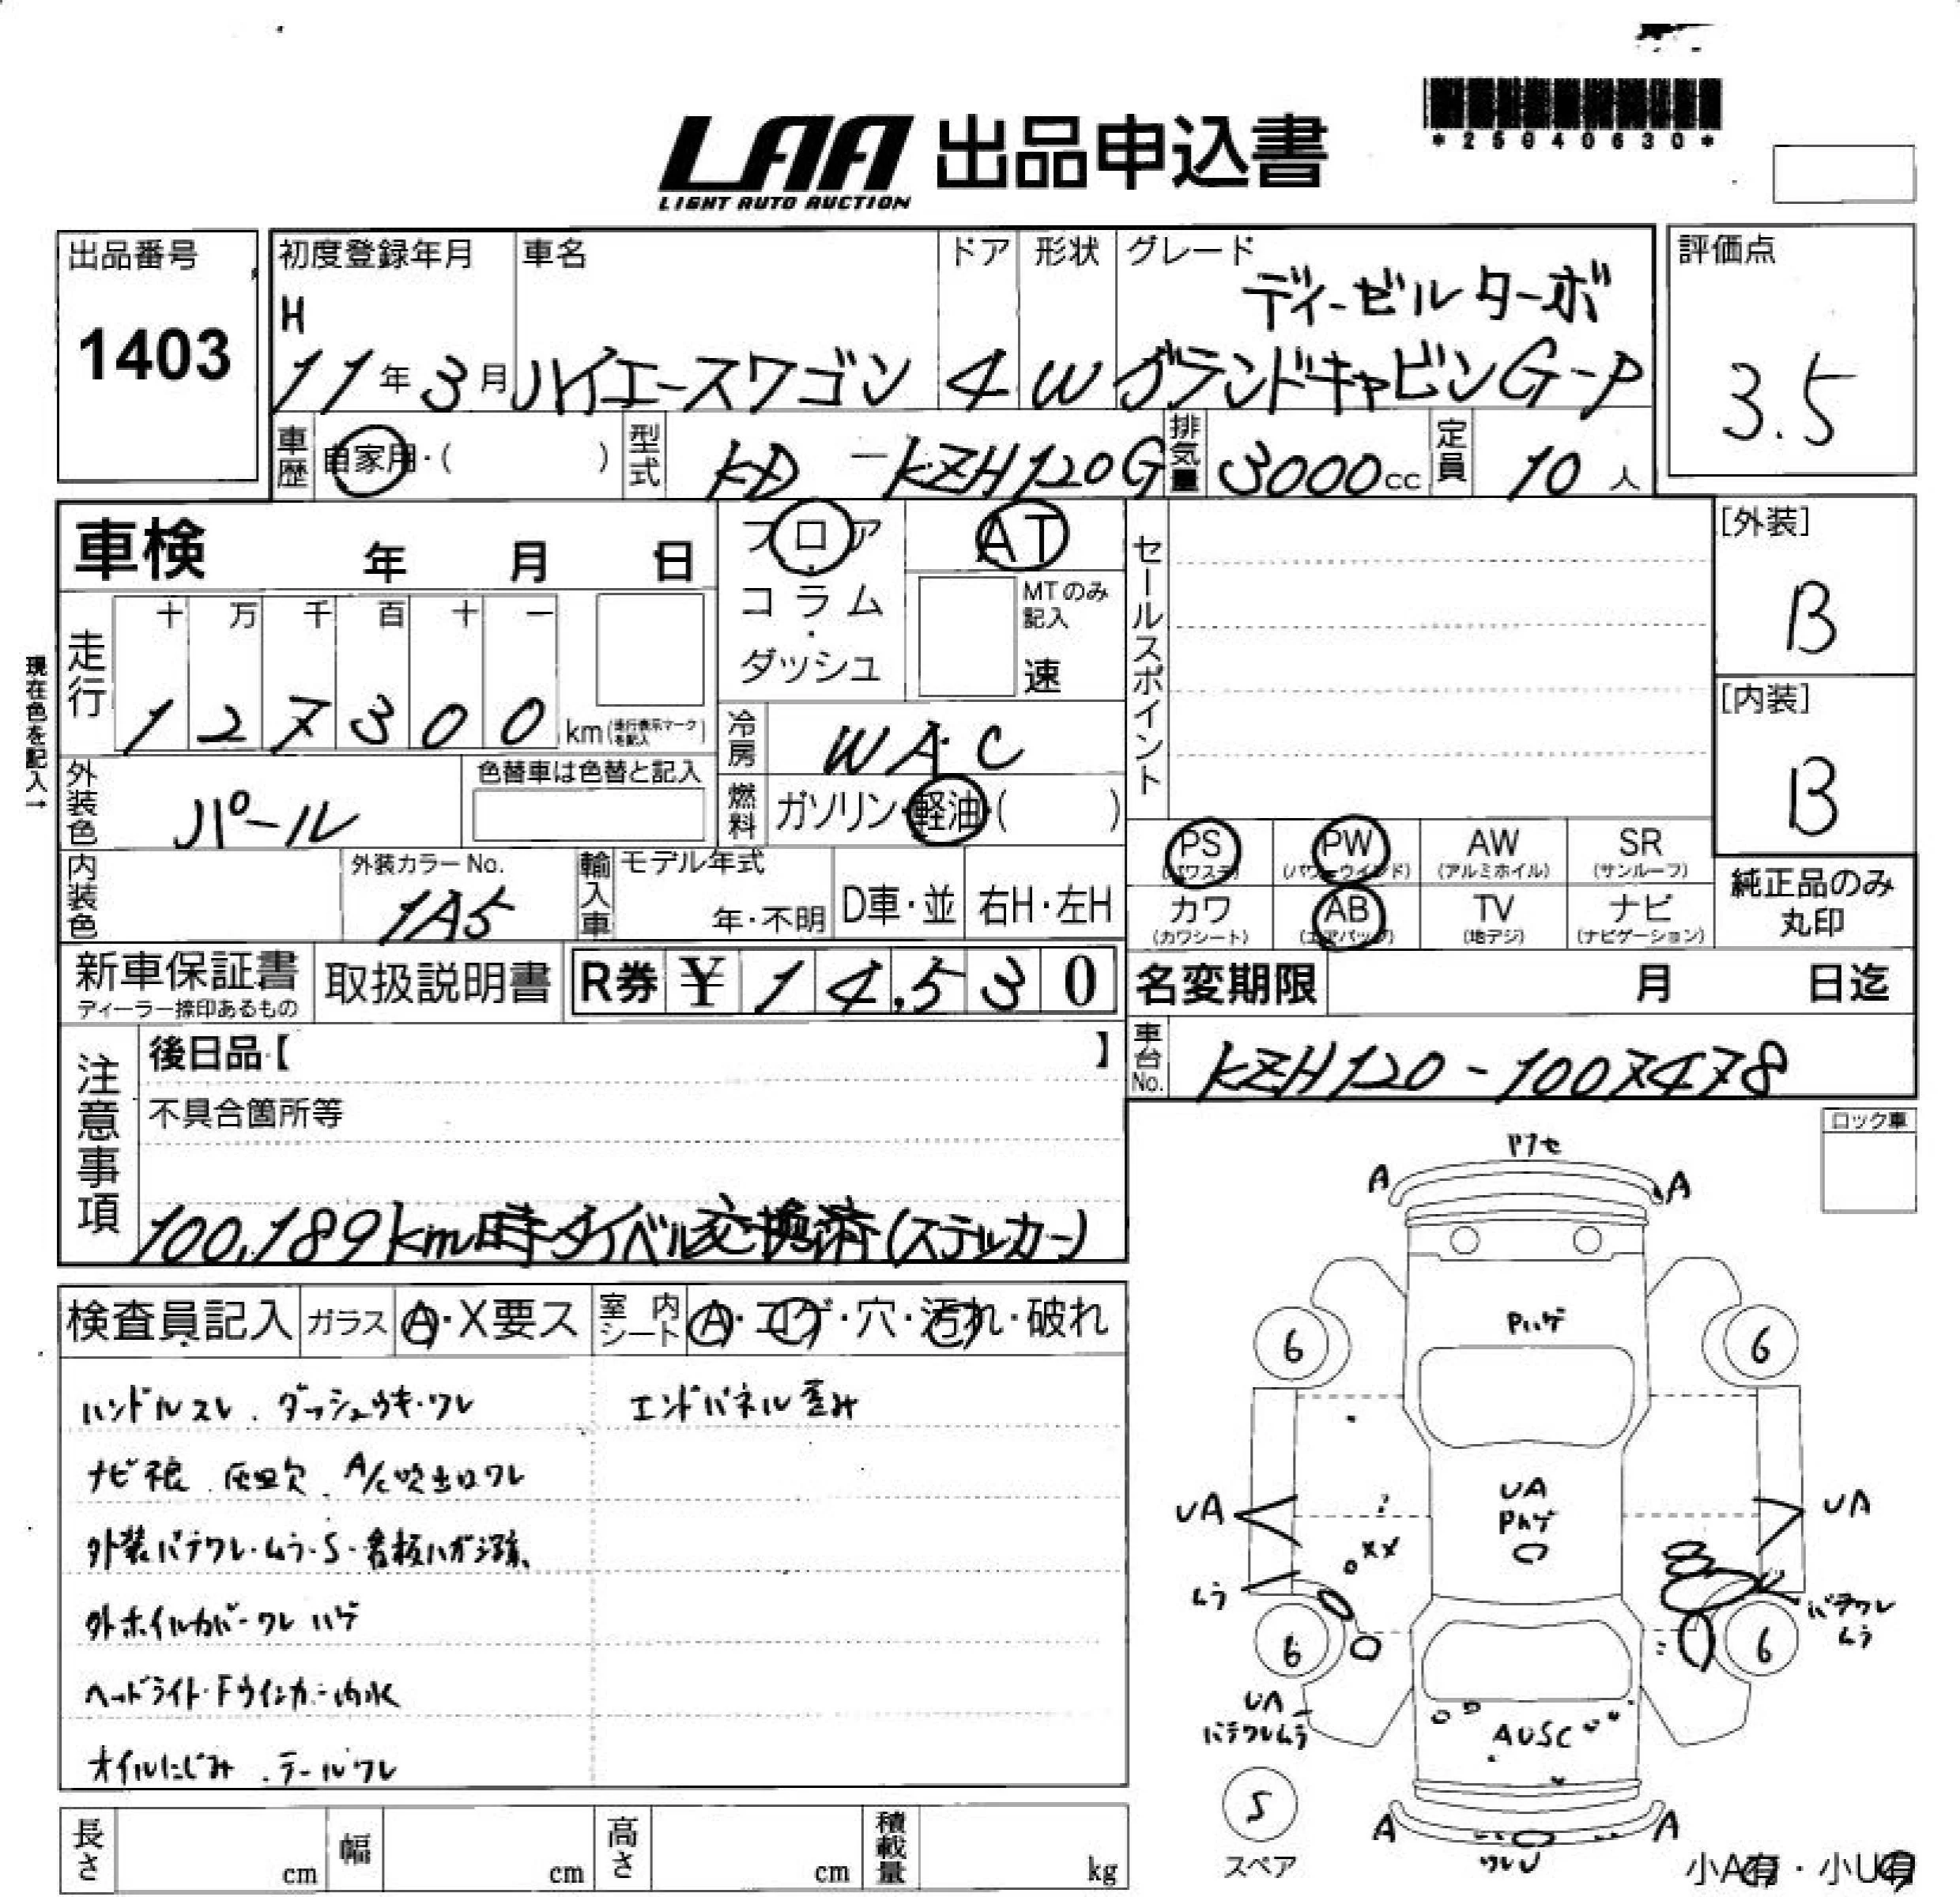 LAA 出品申込書
LIGHT AUTO AUCTION
*25040630*
出品番号
1403
初度登録年月
H
11年3月
車名
ハイエースワゴン
ドア
4
形状
W
グレード
ディーゼルターボ
グランドキャビンG-P
評価点
3.5
車歴
自家用・( )
型式
KD-KZH120G
排気量
3000cc
定員
10人
車検 年 月 日
フロア
・
コラム
・
ダッシュ
AT
MTのみ
記入
速
セールスポイント
[外装]
B
[内装]
B
現在色を記入→
走行
十 万 千 百 十 一
1 2 7 3 0 0 km(走行表示マークを記入)
冷房
WAC
外装色
パール
色替車は色替と記入
燃料
ガソリン・軽油・( )
内装色
外装カラーNo.
1A5
輸入車
モデル年式
年・不明
D車・並
右H・左H
PS
(パワステ)
PW
(パワーウインド)
AW
(アルミホイル)
SR
(サンルーフ)
カワ
(カワシート)
AB
(エアバッグ)
TV
(地デジ)
ナビ
(ナビゲーション)
純正品のみ
丸印
新車保証書
ディーラー捺印あるもの
取扱説明書
R券 ¥14,530
名変期限 月 日迄
注意事項
後日品【 】
不具合箇所等
100,189km時タイベル交換済(ステッカー)
車台No.
KZH120-1007478
ロック車
検査員記入
ガラス
A・X要ス
室内シート
A・コゲ・穴・汚れ・破れ
ハンドルスレ、ダッシュウキ・ワレ
エンドパネル歪み
ナビ不良、灰皿欠、A/C吹出口ワレ
外装パテワレ・ムラ・S・看板ハガシ跡、
外ホイルカバーワレ ハゲ
ヘッドライト・Fウインカー内水
オイルにじみ、テールワレ
A
A
Pハゲ
6
6
UA
UA
Pハゲ
UA
××
ムラ
パテワレ
ムラ
6
6
UA
パテワレムラ
AUSC
S
スペア
A
A
ワレU
小A有・小U有
長さ cm
幅 cm
高さ cm
積載量 kg